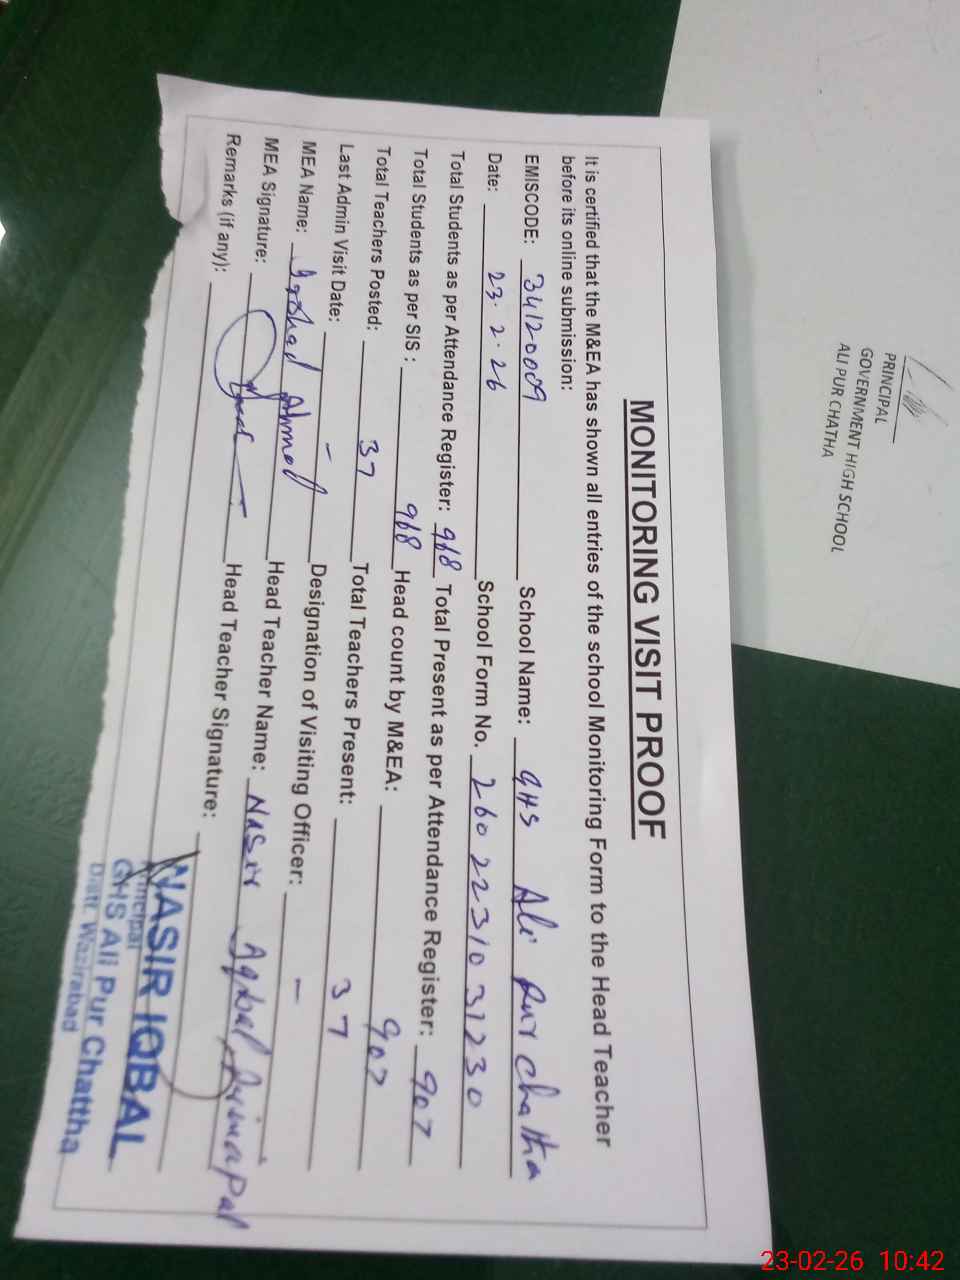 MONITORING VISIT PROOF
It is certified that the M&EA has shown all entries of the school Monitoring Form to the Head Teacher
before its online submission:
EMISCODE: 34120009 School Name: GHS Ali Pur Chatha
Date: 23.2.26 School Form No. 2602231031230
Total Students as per Attendance Register: 968 Total Present as per Attendance Register: 907
Total Students as per SIS : 968 Head count by M&EA: 907
Total Teachers Posted: 37 Total Teachers Present: 37
Last Admin Visit Date: - Designation of Visiting Officer: -
MEA Name: Ahmad Head Teacher Name: Nasir Iqbal Principal
MEA Signature: Head Teacher Signature:
Remarks (if any):
NASIR IQBAL
Principal
GHS Ali Pur Chattha
Distt. Wazirabad
PRINCIPAL
GOVERNMENT HIGH SCHOOL
ALI PUR CHATHA
23-02-26 10:42